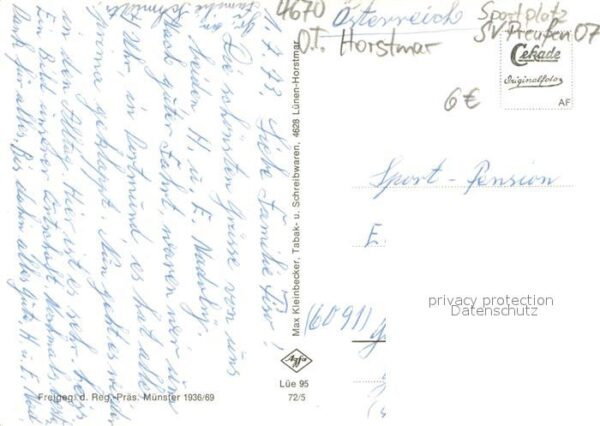 4670 Österreich Sportplatz
O.T. Horstmar SV Preußen 07
6 €
Cekade
Originalfoto
AF
1. 7. 73. Liebe Familie
Die schönsten Grüsse von uns
beiden H. u. E. Nadolny.
Nach guter Fahrt, waren wir um
Uhr, in Dortmund, es hat alles
prima geklappt. Nun geht es wieder
in den Alltag. Hier ist es sehr heiss
Ein Bild unserer Ortschaft. Nochmals
Dank für alles. Bis dahin alles Gute. H. u. E.
Familie Schmidt.
Max Kleinbecker, Tabak- u. Schreibwaren, 4628 Lünen-Horstmar
Sport - Pension
E
privacy protection
Datenschutz
(6091)
Agfa
Lüe 95
72/5
Freigeg. d. Reg.-Präs. Münster 1936/69